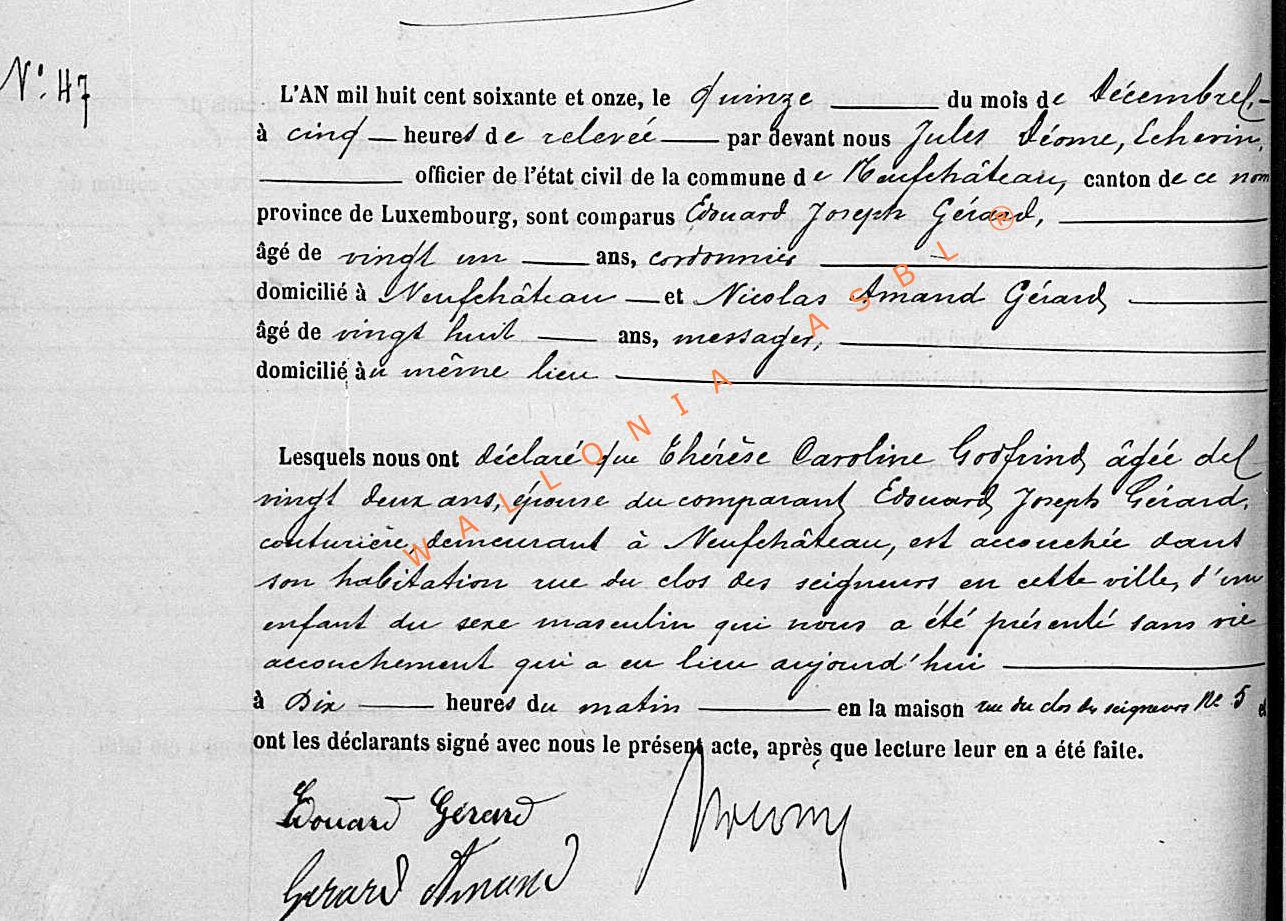 N° 47
L'AN mil huit cent soixante et onze, le quinze du mois de Décembre,
à cinq heures de relevée par devant nous Jules Déome, Echevin,
officier de l'état civil de la commune de Neufchâteau, canton de ce nom
province de Luxembourg, sont comparus Edouard Joseph Gérard,
âgé de vingt un ans, cordonnier
domicilié à Neufchâteau et Nicolas Amand Gérard
âgé de vingt huit ans, messager,
domicilié au même lieu
Lesquels nous ont déclaré que Thérèse Caroline Godfrind âgée de
vingt deux ans, épouse du comparant Edouard Joseph Gérard,
couturière, demeurant à Neufchâteau, est accouchée dans
son habitation rue du clos des seigneurs en cette ville, d'un
enfant du sexe masculin qui nous a été présenté sans vie
accouchement qui a eu lieu aujourd'hui
à Dix heures du matin en la maison rue du clos des seigneurs N° 5 et
ont les déclarants signé avec nous le présent acte, après que lecture leur en a été faite.
Edouard Gérard
Gerard Amand
WALLONIA ASBL ®